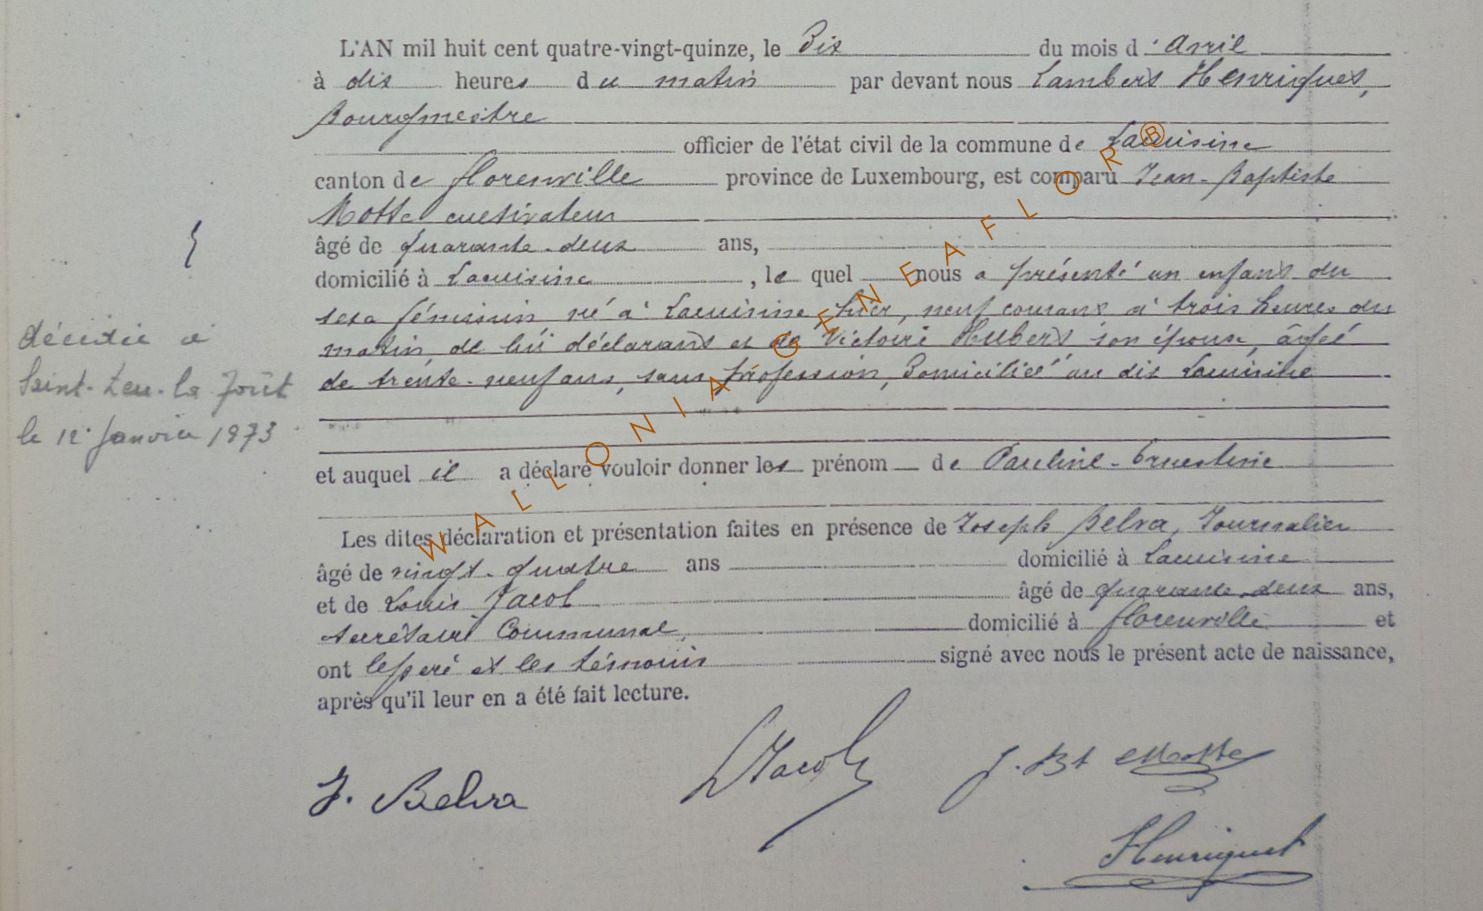 L'AN mil huit cent quatre-vingt-quinze, le Dix du mois d'Avril
à dix heures du matin par devant nous Lambert Henriquet,
Bourgmestre
officier de l'état civil de la commune de Lacuisine
canton de florenville province de Luxembourg, est comparu Jean-Baptiste
Motte cultivateur
âgé de quarante-deux ans,
domicilié à Lacuisine, lequel nous a présenté un enfant du
sexe féminin né à Lacuisine hier, neuf courant à trois heures du
matin, de lui déclarant et de Victoire Hubert son épouse, âgée
de trente-neuf ans, sans profession, Domiciliée au dit Lacuisine
décédée à
Saint-Leu-la Forêt
le 12 janvier 1973
et auquel il a déclaré vouloir donner les prénom de Pauline-Ernestine
Les dites déclaration et présentation faites en présence de Joseph Belva, Journalier
âgé de vingt-quatre ans domicilié à Lacuisine
et de Louis Jacob âgé de quarante-deux ans,
secrétaire Communal, domicilié à florenville et
ont le père et les témoins signé avec nous le présent acte de naissance,
après qu'il leur en a été fait lecture.
J. Belva
LJacob
J. Bt Motte
Henriquet
WALLONIA GENEAFLOR®